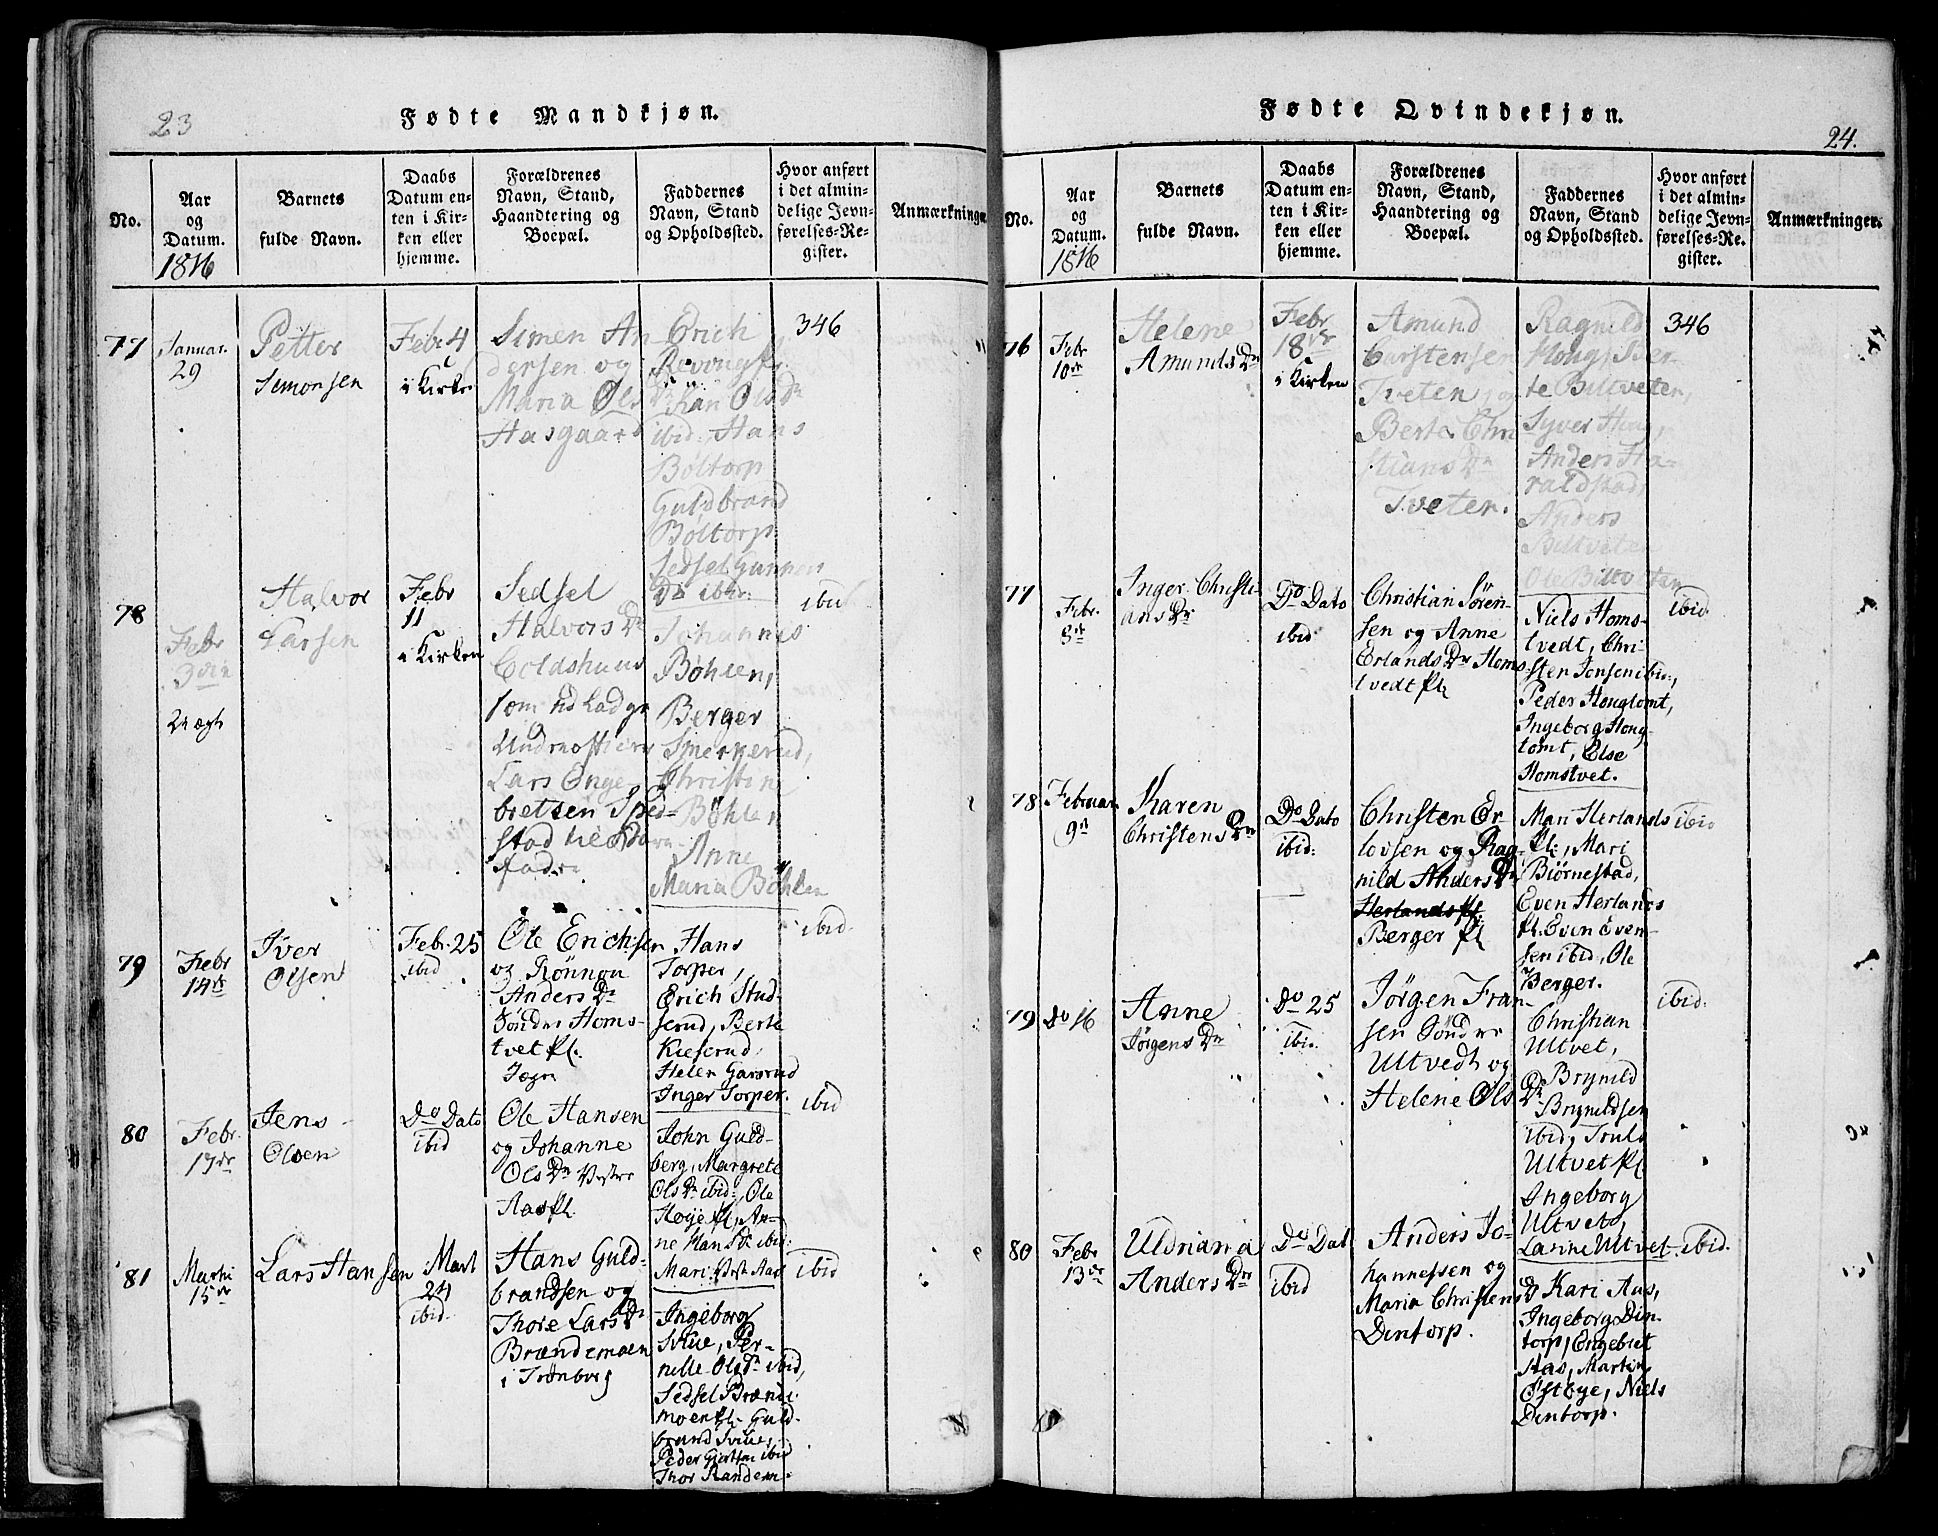 23
Fødte Mandkjøn.
No.
Aar
og
Datum.
1816
Barnets
fulde Navn.
Daabs
Datum en-
ten i Kir-
ken eller
hjemme.
Forældrenes
Navn, Stand,
Haandtering og
Boepæl.
Faddernes
Navn, Stand
og Opholdssted.
Hvor anført
i det almin-
delige Jevn-
førelses-Re-
gister.
Anmærkninger.
77
Januar.
29
Petter
Simonsen
Febr 4
i Kirke
Simen An
dersen og
Maria Ols Dr
Aasgaard
Erich
Kari Olsdr
ibid, Hans
Böltorp
Guldbrand
Böltorp
Sedsel Gunners
Dr ibid:
346
78
Febr
3die
Uægt
Halvor
Larsen
Febr
11
i Kirken
Sedsel
Halvors Dr
som
Lars Enge
bretsen
fader
Johannes
Böhlen,
Berger
Smerperud,
Christine
Böhlen
Anne
Maria Böhlen
ibid
79
Febr
14de
Iver
Olsen
Febr. 25
ibid
Ole Erichsen
og Rönnou
Anders Dr
Sönder Homs-
tvet Pl.
Hans
Torper,
Erich Stud-
serud, Berte
Kieserud,
Helen Garsrud
Inger Torper.
ibid.
80
Febr.
17de
Jens
Olsen
Do Dato
ibid
Ole Hansen
og Johanne
Ols Dr Vestre
Aas Pl.
John Guld-
berg, Margrete
Ols Dr ibid:, Ole
Höije Pl, An-
ne Hans Dr ibid:
Mari Vest Aas
ibid
81
Martii
15de
Lars Hansen
Mart
24
ibid.
Hans Guld-
brandsen og
Thore Lars Dr
Brændemoen
i Trönborg
Ingeborg
Sviue, Per-
nelle Olsdr ibid,
Sedsel Brænde
moen Pl. Guld-
brand Sviue,
Peder Giertsen ibid
Thor Randem-
ibid
Fødte Qvindekjøn.
24.
No.
Aar
og
Datum.
1816
Barnets
fulde Navn.
Daabs
Datum en-
ten i Kir-
ken eller
hjemme.
Forældrenes
Navn, Stand,
Haandtering og
Boepæl.
Faddernes
Navn, Stand
og Opholdssted.
Hvor anført
i det almin-
delige Jevn-
førelses-Re-
gister.
Anmærkninger.
76
Febr
10de
Helene
Amunds Dr
Febr
18de
i Kirken
Amund
Carstensen
Tveten, og
Berte Chri
stians Dr
Tveten.
Ragnild
Houg, Ber-
te Biltveten,
Syver Houg,
Anders Ha-
raldstad,
Anders
Biltveten
Ole Biltveten
346
77
Febr.
8de
Inger Christi-
ans Dr
Do Dato
ibid
Christian Sören-
sen og Anne
Erlands Dr Homs
tvedt Pl
Niels Homs-
tvedt, Chri-
sten Jensen ibid:,
Peder Hougtomt,
Ingeborg Houg-
tomt, Else
Homstvet.
ibid.
78
Februar
9de
Karen
Christens Dr
Do Dato
ibid:
Christen Er-
lovsen og Rag-
nild Anders Dr
Herlands Pl.
Berger Pl
Mari Herlands
Pl:, Mari
Biörnestad,
Even Herlands
Pl. Even Even-
sen ibid, Ole
Berger.
ibid
79
Do 16
Anne
Jörgens Dr
Do 25
ibid.
Jörgen Fran-
sen Söndre
Ultvedt og
Helene Ols
Dr
Christian
Ultvet,
Brynild
Brynildsen
ibid, Truls
Ultvet Pl
Ingeborg
Ultvet,
Larine Ultvet.
ibid.
80
Febr
13de
Uldriania
Anders Dr
Do Dat
ibid
Anders Jo-
hannessen og
Maria Christens
Dr
Dentorp.
Kari Aas,
Ingeborg Den-
torp, Engebret
Aas, Martin
Östbye, Niels
Dentorp.
ibid.